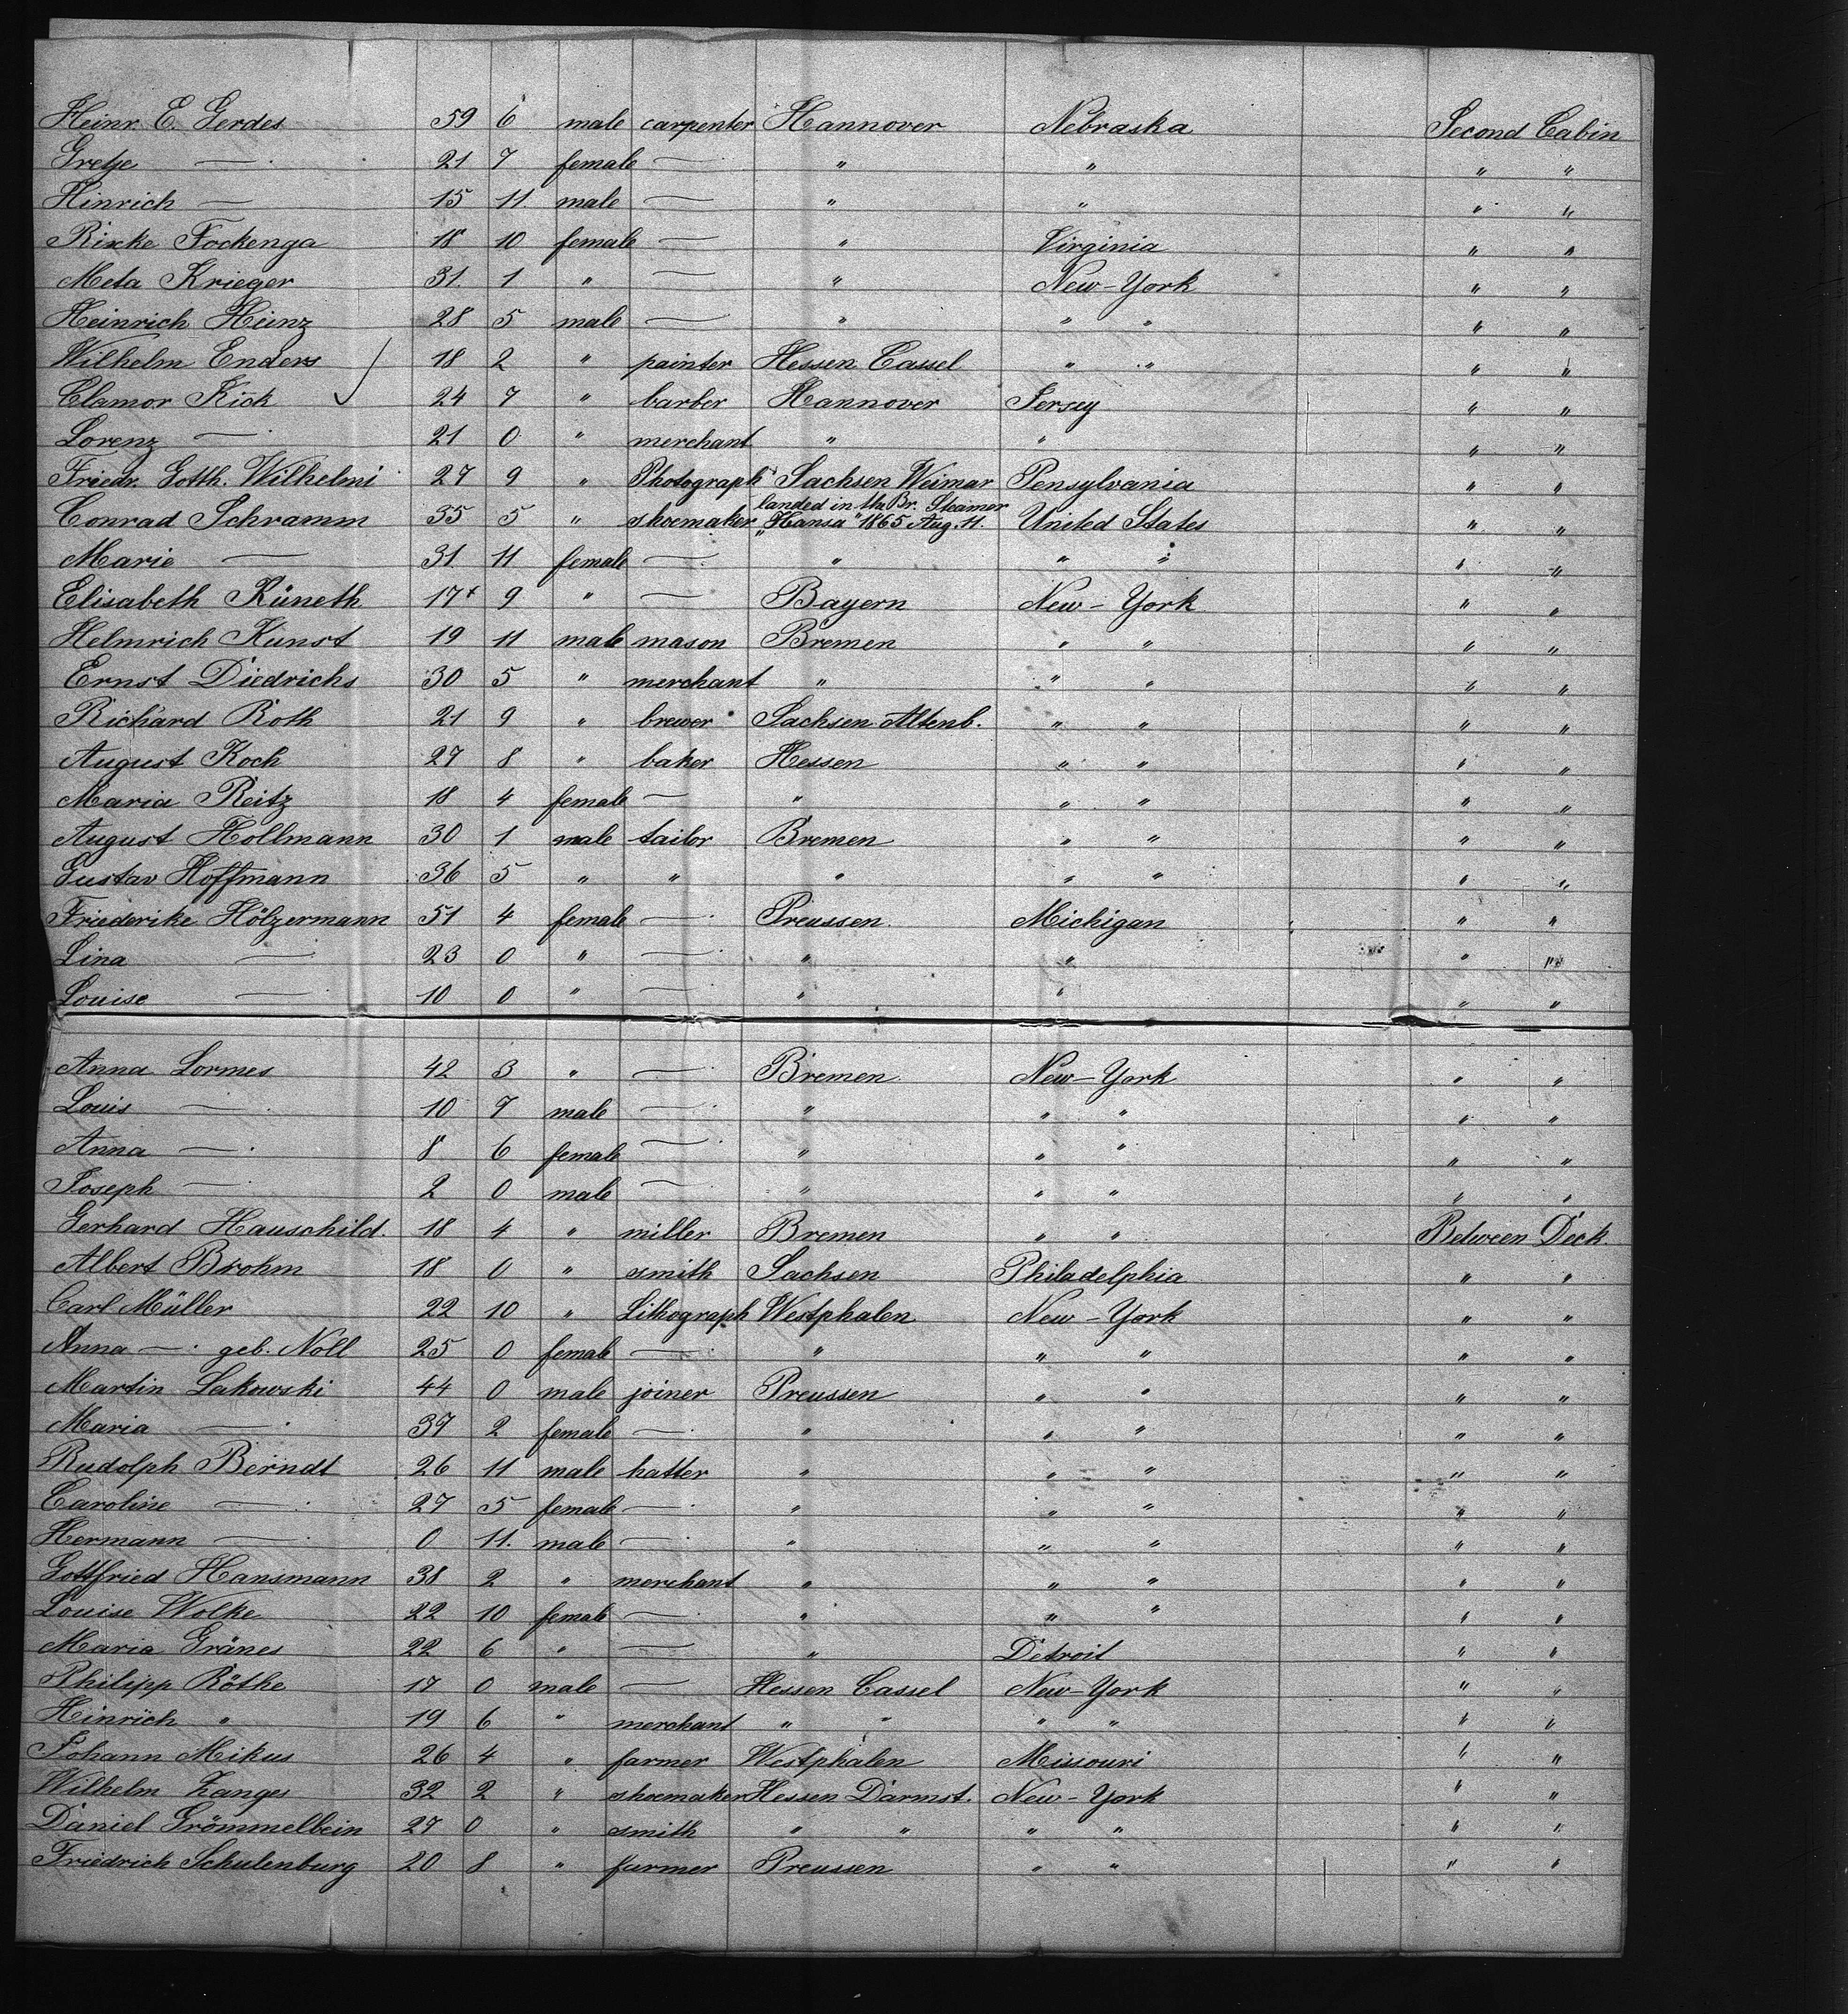 Heinr. E. Gerdes 59 6 male carpenter Hannover Nebraska Second Cabin
Gretje — 21 7 female — " " " "
Hinrich — 15 11. male — " " " "
Rixke Fockenga 18 10 female — " Virginia " "
Meta Krieger 31. 1 " — " New-York " "
Heinrich Heinz 28 5 male — " " " " "
Wilhelm Enders 18 2 " painter Hessen Cassel " " " "
Clamor Kick 24 7 " barber Hannover Jersey " "
Lorenz — 21 0 " merchant " " " "
Friedr. Gotth. Wilhelmi 27 9 " Photograph Sachsen Weimar Pensylvania " "
Conrad Schramm 35 5 " shoemaker landed in the Br. Steamer "Hansa" 1865 Aug. 11. United States " "
Marie — 31 11 female — " " " " "
Elisabeth Küneth 17+ 9 " — Bayern New-York " "
Helmrich Kunst 19 11 male mason Bremen " " " "
Ernst Diedrichs 30 5 " merchant " " " " "
Richard Roth 21 9 " brewer Sachsen Altenb. " " " "
August Koch 27 8 " baker Hessen " " " "
Maria Reitz 18 4 female — " " " " "
August Hollmann 30 1 male tailor Bremen " " " "
Gustav Hoffmann 36 5 " " " " " " "
Friederike Hölzermann 51 4 female — Preussen. Michigan " "
Lina — 23 0 " — " " " "
Louise — 10 0 " — " " " "
Anna Lormes 42 3 " — Bremen New-York " "
Louis — 10 7 male — " " " " "
Anna — 8 6 female — " " " " "
Joseph — 2 0 male — " " " " "
Gerhard Hauschild. 18 4 " miller Bremen " " Between Deck
Albert Brohm 18 0 " smith Sachsen Philadelphia " "
Carl Müller 22 10 " Lithograph Westphalen New-York " "
Anna — geb. Noll 25 0 female — " " " " "
Martin Lakowski 44 0 male joiner Preussen " " " "
Maria — 37 2 female — " " " " "
Rudolph Berndt 26 11 male hatter " " " " "
Caroline — 27 5 female — " " " " "
Hermann — 0 11. male — " " " " "
Gottfried Hansmann 38 2 " merchant " " " " "
Louise Wolke 22 10 female — " " " " "
Maria Gränes 22 6 " — " Detroit " "
Philipp Röthe 17 0 male — Hessen Cassel New-York " "
Hinrich " 19 6 " merchant " " " " " "
Johann Mikus 26 4 " farmer Westphalen Missouri " "
Wilhelm Zanges 32 2 " shoemaker Hessen Darmst. New-York " "
Daniel Grömmelbein 27 0 " smith " " " " " "
Friedrich Schulenburg 20 8 " farmer Preussen " " " "